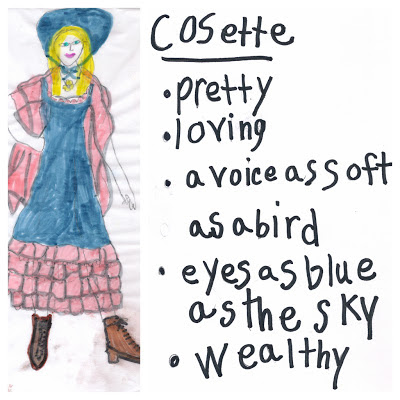 Cosette
• pretty
• loving
• a voice as soft
as a bird
• eyes as blue
as the sky
• wealthy